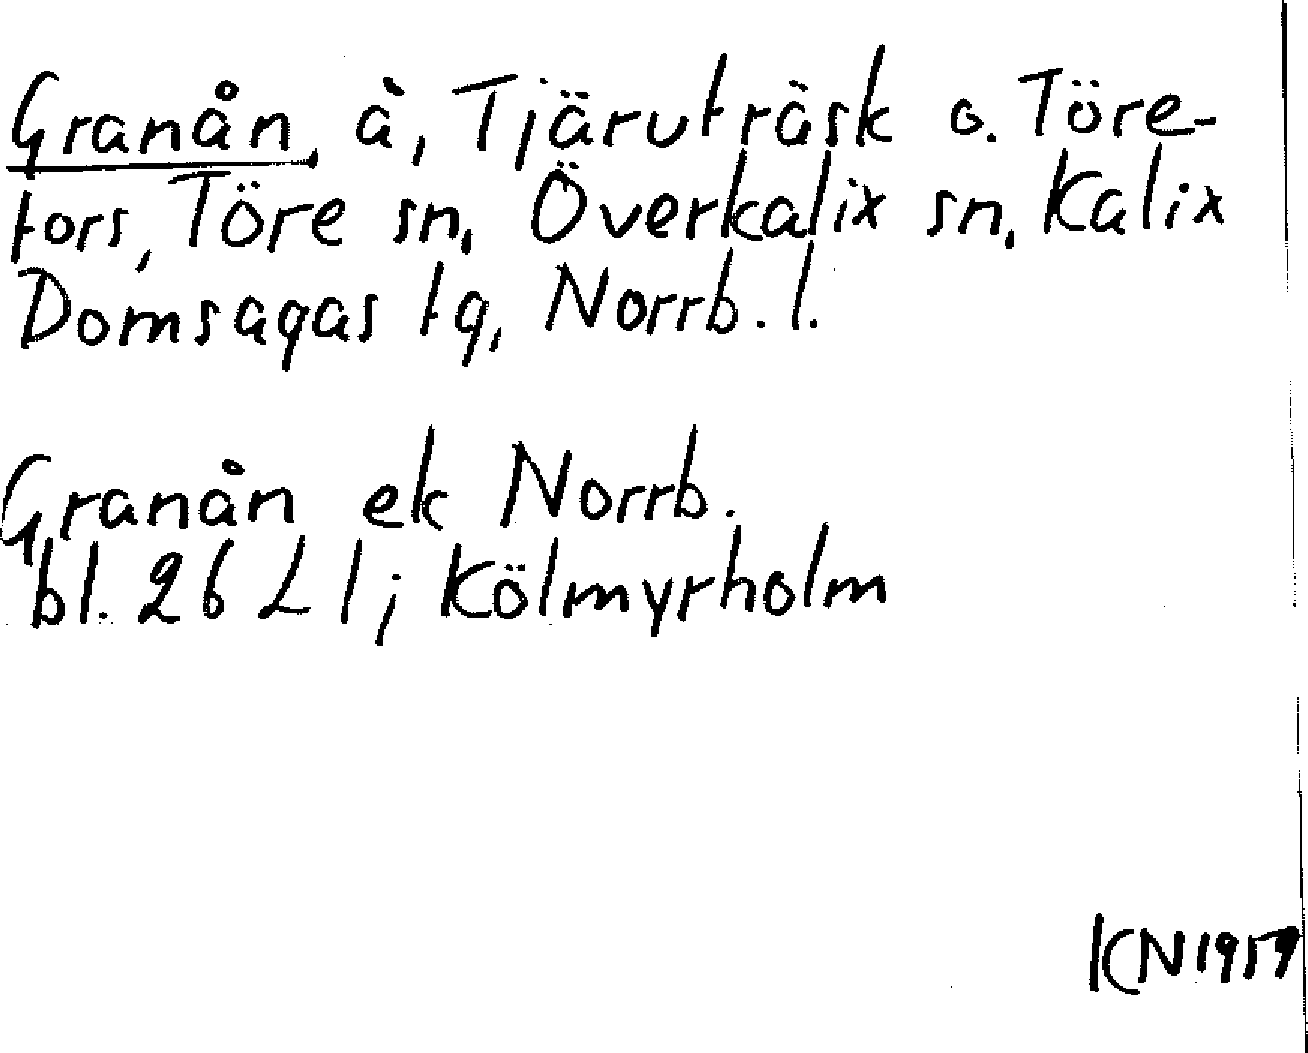 Granån, å, Tjäruträsk o. Töre-
fors, Töre sn, Överkalix sn, Kalix
Domsagas tg, Norrb. l.
Granån ek Norrb.
bl. 26 L 1; Kölmyrholm
KN 1959